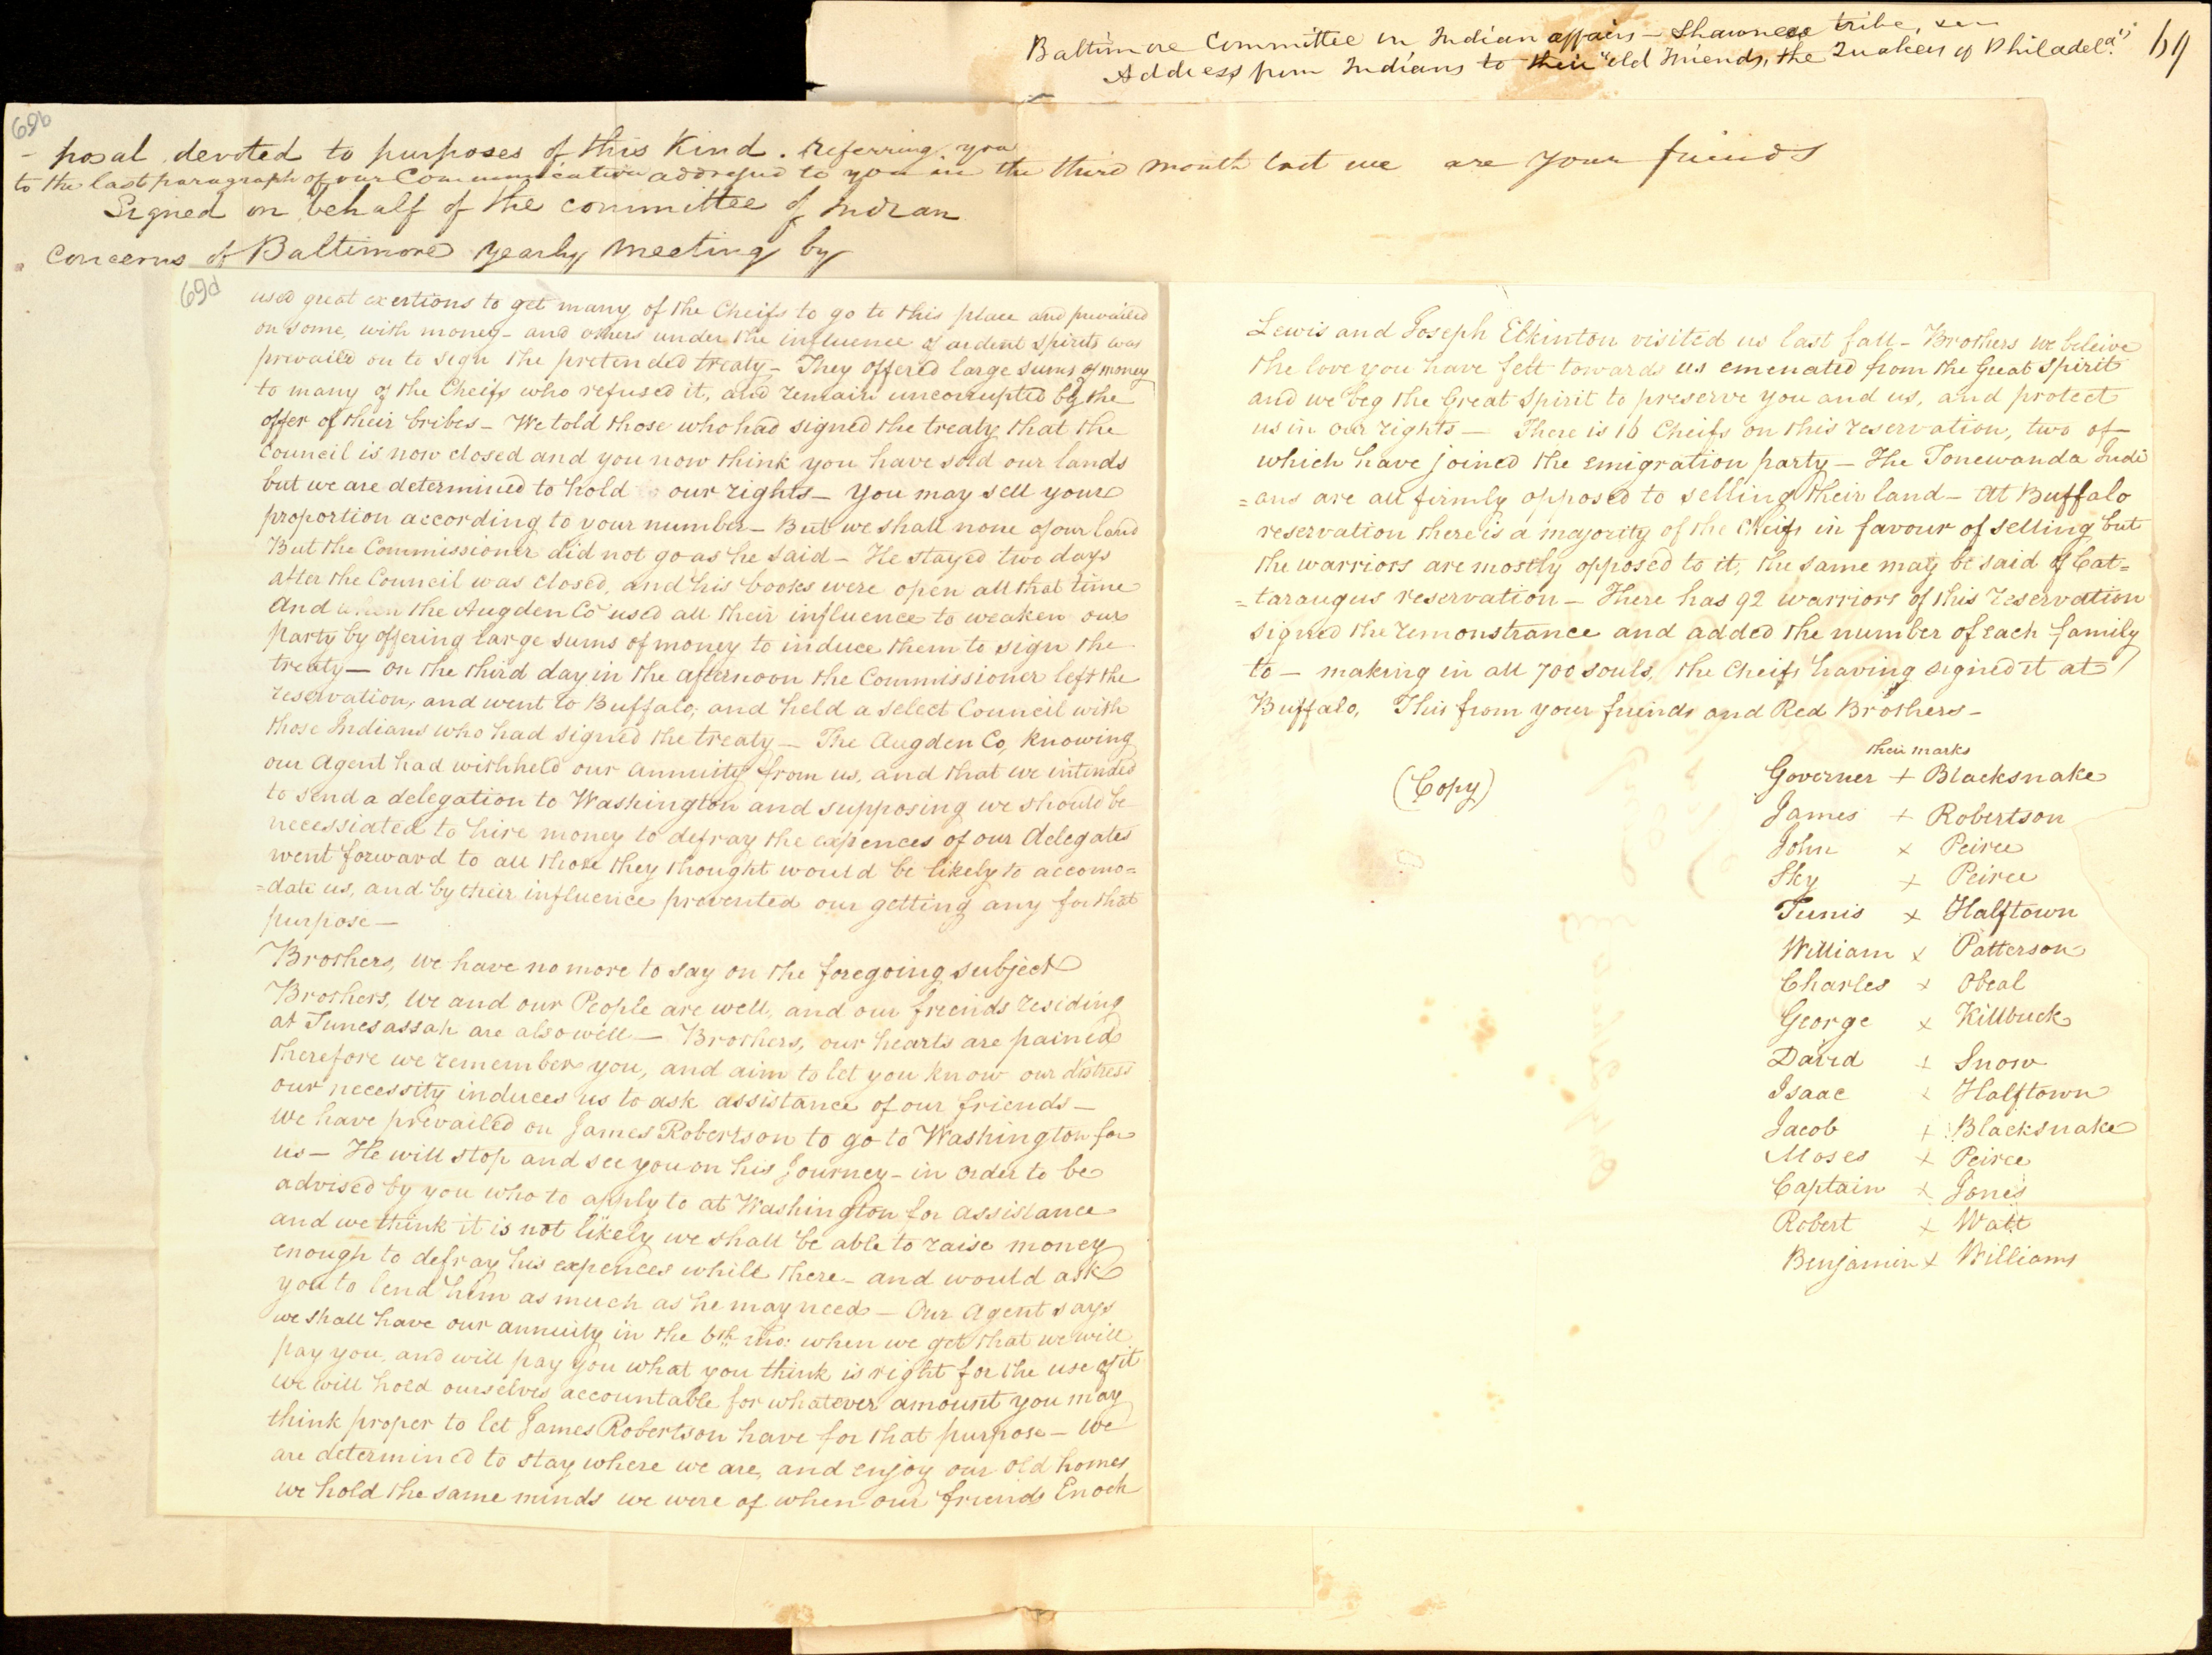 Baltimore Committee on Indian affairs - Shawnese tribe,
Address from Indians to their "old Friends, the Quakers of Philadela"
69
69b
- posal devoted to purposes of this Kind. Referring you
to the last paragraph of our Communication addressed to you in the third month last we are your friends
Signed on behalf of the committee of Indian
Concerns of Baltimore yearly meeting by
69d
used great exertions to get many of the Cheifs to go to this place and prevailed
on some, with money - and others under the influence of ardent spirits was
prevaild on to sign the pretended treaty - They offered large sums of money
to many of the Cheifs who refused it, and remain uncorrupted by the
offer of their bribes - We told those who had signed the treaty that the
Council is now closed and you now think you have sold our lands
but we are determined to hold our rights - you may sell your
proportion according to your number - But we shall none of our land
But the Commissioner did not go as he said - He stayed two days
after the Council was closed, and his books were open all that time
And when the Augden Co used all their influence to weaken our
party by offering large sums of money to induce them to sign the
treaty - on the third day in the afternoon the Commissioner left the
reservation, and went to Buffalo, and held a select Council with
those Indians who had signed the treaty - The Augden Co, knowing
our Agent had withheld our annuity from us, and that we intended
to send a delegation to Washington and supposing we should be
necessiated to hire money to defray the expences of our delegates
went forward to all those they thought would be likely to accomo=
=date us, and by their influence prevented our getting any for that
purpose -
Brothers, we have no more to say on the foregoing subject
Brothers, We and our People are well, and our friends residing
at Tunesassah are also well - Brothers, our hearts are pained
therefore we remember you, and aim to let you know our distress
our necessity induces us to ask assistance of our friends -
we have prevailed on James Robertson to go to Washington for
us - He will stop and see you on his Journey - in order to be
advised by you who to apply to at Washington for assistance
and we think it is not likely we shall be able to raise money
enough to defray his expences while there - and would ask
you to lend him as much as he may need - Our Agent says
we shall have our annuity in the 6th mo: when we get that we will
pay you, and will pay you what you think is right for the use of it
we will hold ourselves accountable for whatever amount you may
think proper to let James Robertson have for that purpose - We
are determined to stay where we are, and enjoy our old homes
we hold the same minds we were of when our friends Enoch
Lewis and Joseph Elkinton visited us last fall - Brothers we beleive
the love you have felt towards us emenated from the Great Spirit
and we beg the Great Spirit to preserve you and us, and protect
us in our rights - There is 16 Cheifs on this reservation, two of
which have joined the emigration party - The Tonewanda Indi
=ans are all firmly opposed to selling their land - At Buffalo
reservation there is a majority of the Cheifs in favour of selling but
the warriors are mostly opposed to it, the same may be said of Cat=
=taraugus reservation - There has 92 warriors of this reservation
signed the remonstrance and added the number of each family
to - making in all 700 souls, the Cheifs having signed it at
Buffalo, This from your friends and Red Brothers -
their marks
(Copy)
Governer + Blacksnake
James + Robertson
John x Peirce
Sky + Peirce
Tunis x Halftown
William x Patterson
Charles x Obeal
George x Killbuck
David + Snow
Isaac x Halftown
Jacob + Blacksnake
Moses x Peirce
Captain x Jones
Robert x Watt
Benjamin x Williams